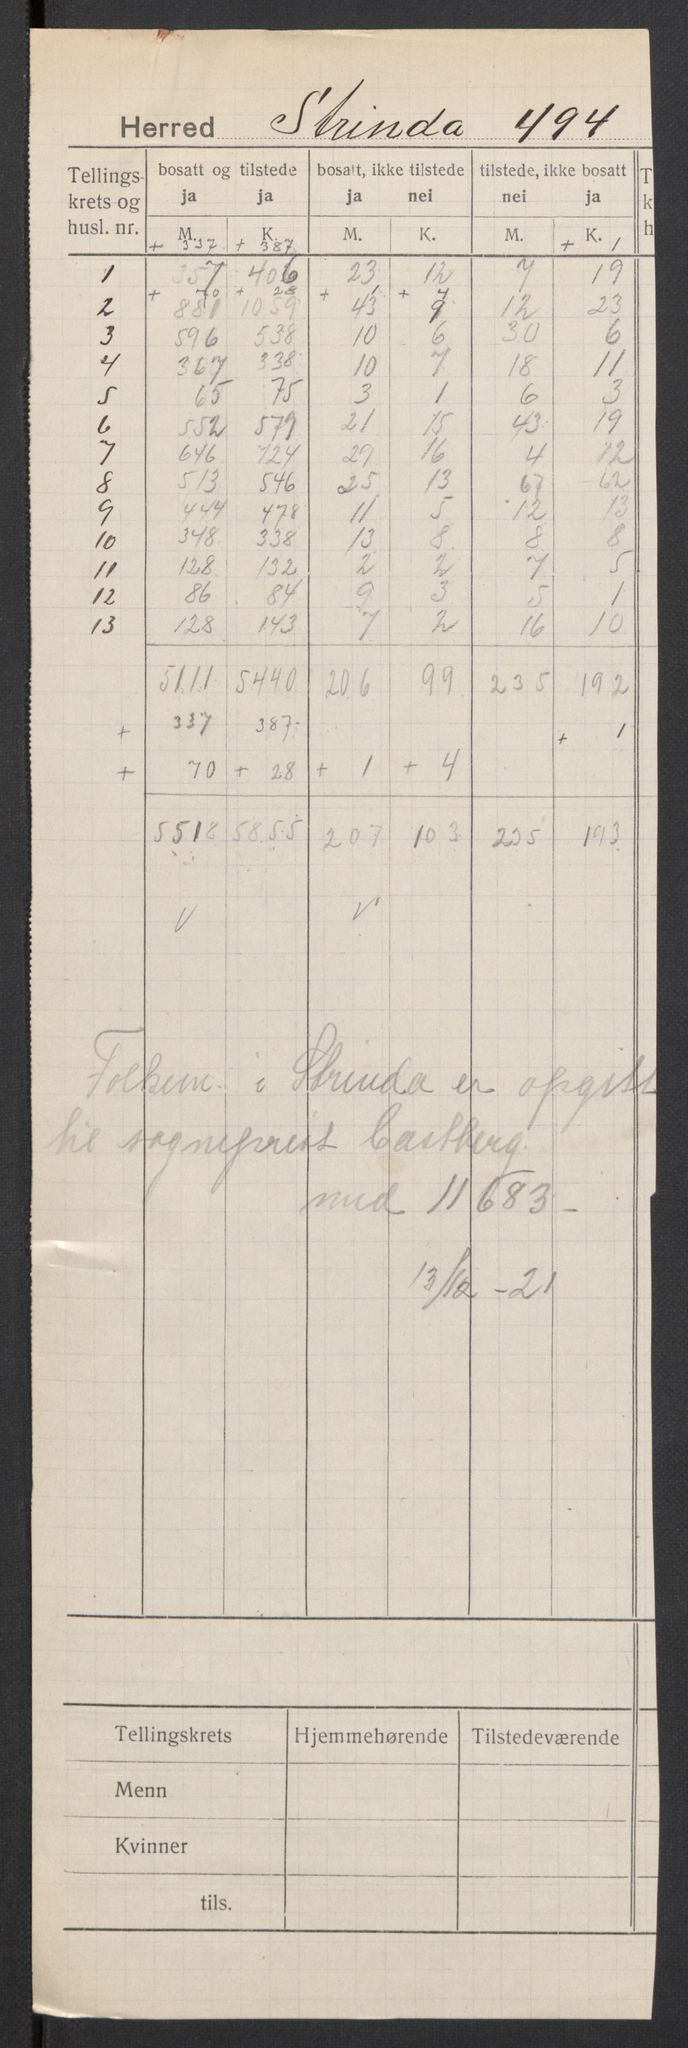 Herred Strinda 494
Tellings- bosatt og tilstede bosatt, ikke tilstede tilstede, ikke bosatt T
krets og ja ja ja nei nei ja k
husl. nr. M. K. M. K. M. K. h
+ 337 + 387 + 1
1 357 406 23 12 7 19
+ 70 + 28 + 1 + 4
2 881 1059 43 9 12 23
3 596 538 10 6 30 6
4 367 338 10 7 18 11
5 65 75 3 1 6 3
6 552 579 21 15 43 19
7 646 724 29 16 4 12
8 513 546 25 13 67 62
9 444 478 11 5 12 13
10 348 338 13 8 8 8
11 128 132 2 2 7 5
12 86 84 9 3 5 1
13 128 143 7 2 16 10
5111 5440 206 99 235 192
+ 337 387 + 1
+ 70 + 28 + 1 + 4
5518 5855 207 103 235 193
V V
Folkem. i Strinda er opgitt
til sogneprest Castberg
med 11683 –
13/12 – 21
Tellingskrets Hjemmehørende Tilstedeværende
Menn
Kvinner
tils.